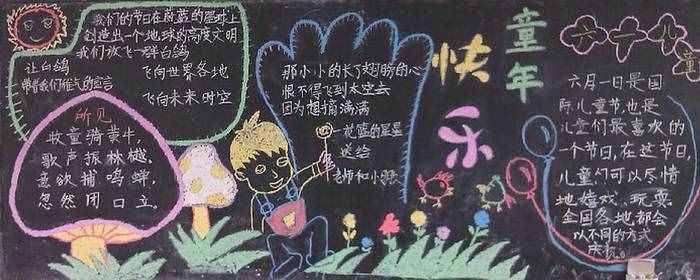 我们的节日在蔚蓝的星球上
创造出一个地球的高度文明
我们放飞一群白鸽
让白鸽 飞向世界各地
带着我们稚气的宣言
飞向未来时空
所见
牧童骑黄牛，
歌声振林樾，
意欲捕鸣蝉，
忽然闭口立。
那小小的长了翅膀的心
恨不得飞到太空去
因为想摘满满
一篮的星星
送给
老师和小朋
快乐
童年
六一儿童
六月一日是国
际儿童节，也是
儿童们最喜欢的
一个节日，在这节日，
儿童们可以尽情
地嬉戏、玩耍
全国各地都会
以不同的方式
庆祝。